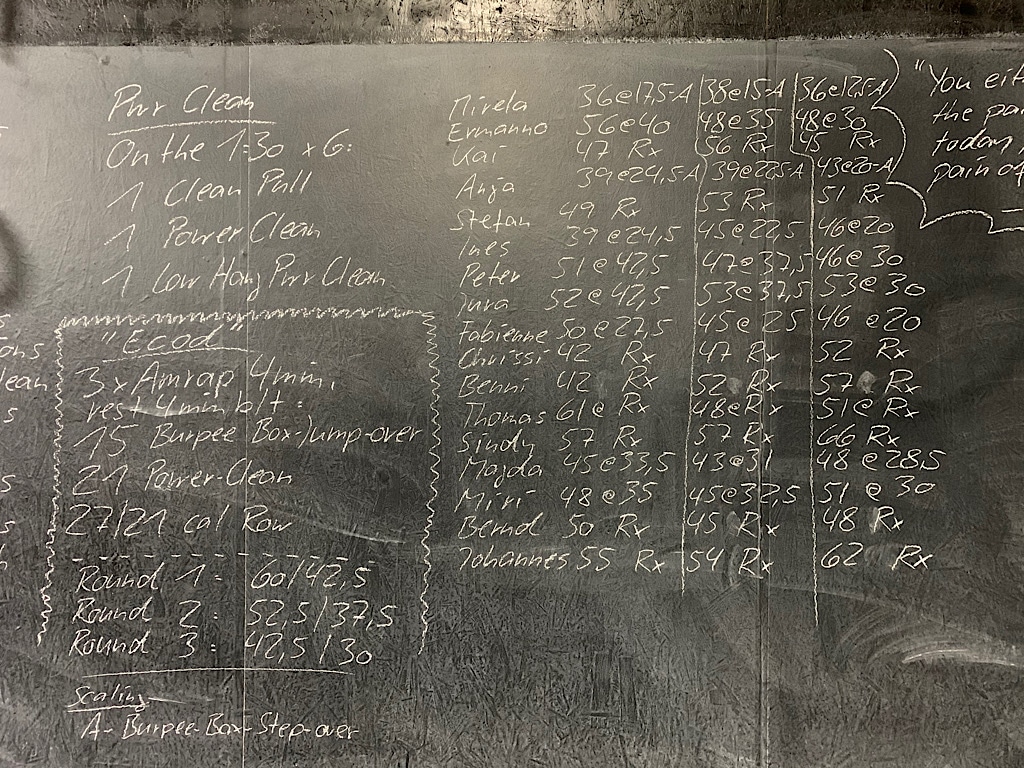 Pwr Clean
On the 1:30 x 6:
1 Clean Pull
1 Power Clean
1 Low Hang Pwr Clean
"Ecod"
3 x Amrap 4min,
rest 4min bt:
15 Burpee Box-Jump-over
21 Power-Clean
27/21 cal Row
Round 1: 60/42,5
Round 2: 52,5/37,5
Round 3: 42,5/30
Scaling
A- Burpee-Box-Step-over
Mirela 36@17,5-A 38@15-A 36@12,5-A
Ermanno 56@40 48@35 48@30
Kai 47 Rx 56 Rx 45 Rx
Anja 39@24,5-A 39@22,5-A 43@20-A
Stefan 49 Rx 53 Rx 51 Rx
Ines 39@24,5 45@22,5 46@20
Peter 51@42,5 47@37,5 46@30
Jura 52@42,5 53@37,5 53@30
Fabienne 50@27,5 45@25 46@20
Chrissi 42 Rx 47 Rx 52 Rx
Benni 42 Rx 52 Rx 57 Rx
Thomas 61@Rx 48@Rx 51@Rx
Sindy 57 Rx 57 Rx 66 Rx
Majda 45@33,5 43@31 48@28,5
Miri 48@35 45@32,5 51@30
Bernd 50 Rx 45 Rx 48 Rx
Johannes 55 Rx 54 Rx 62 Rx
"You eit
the pai
today
pain of
ons
lean
s